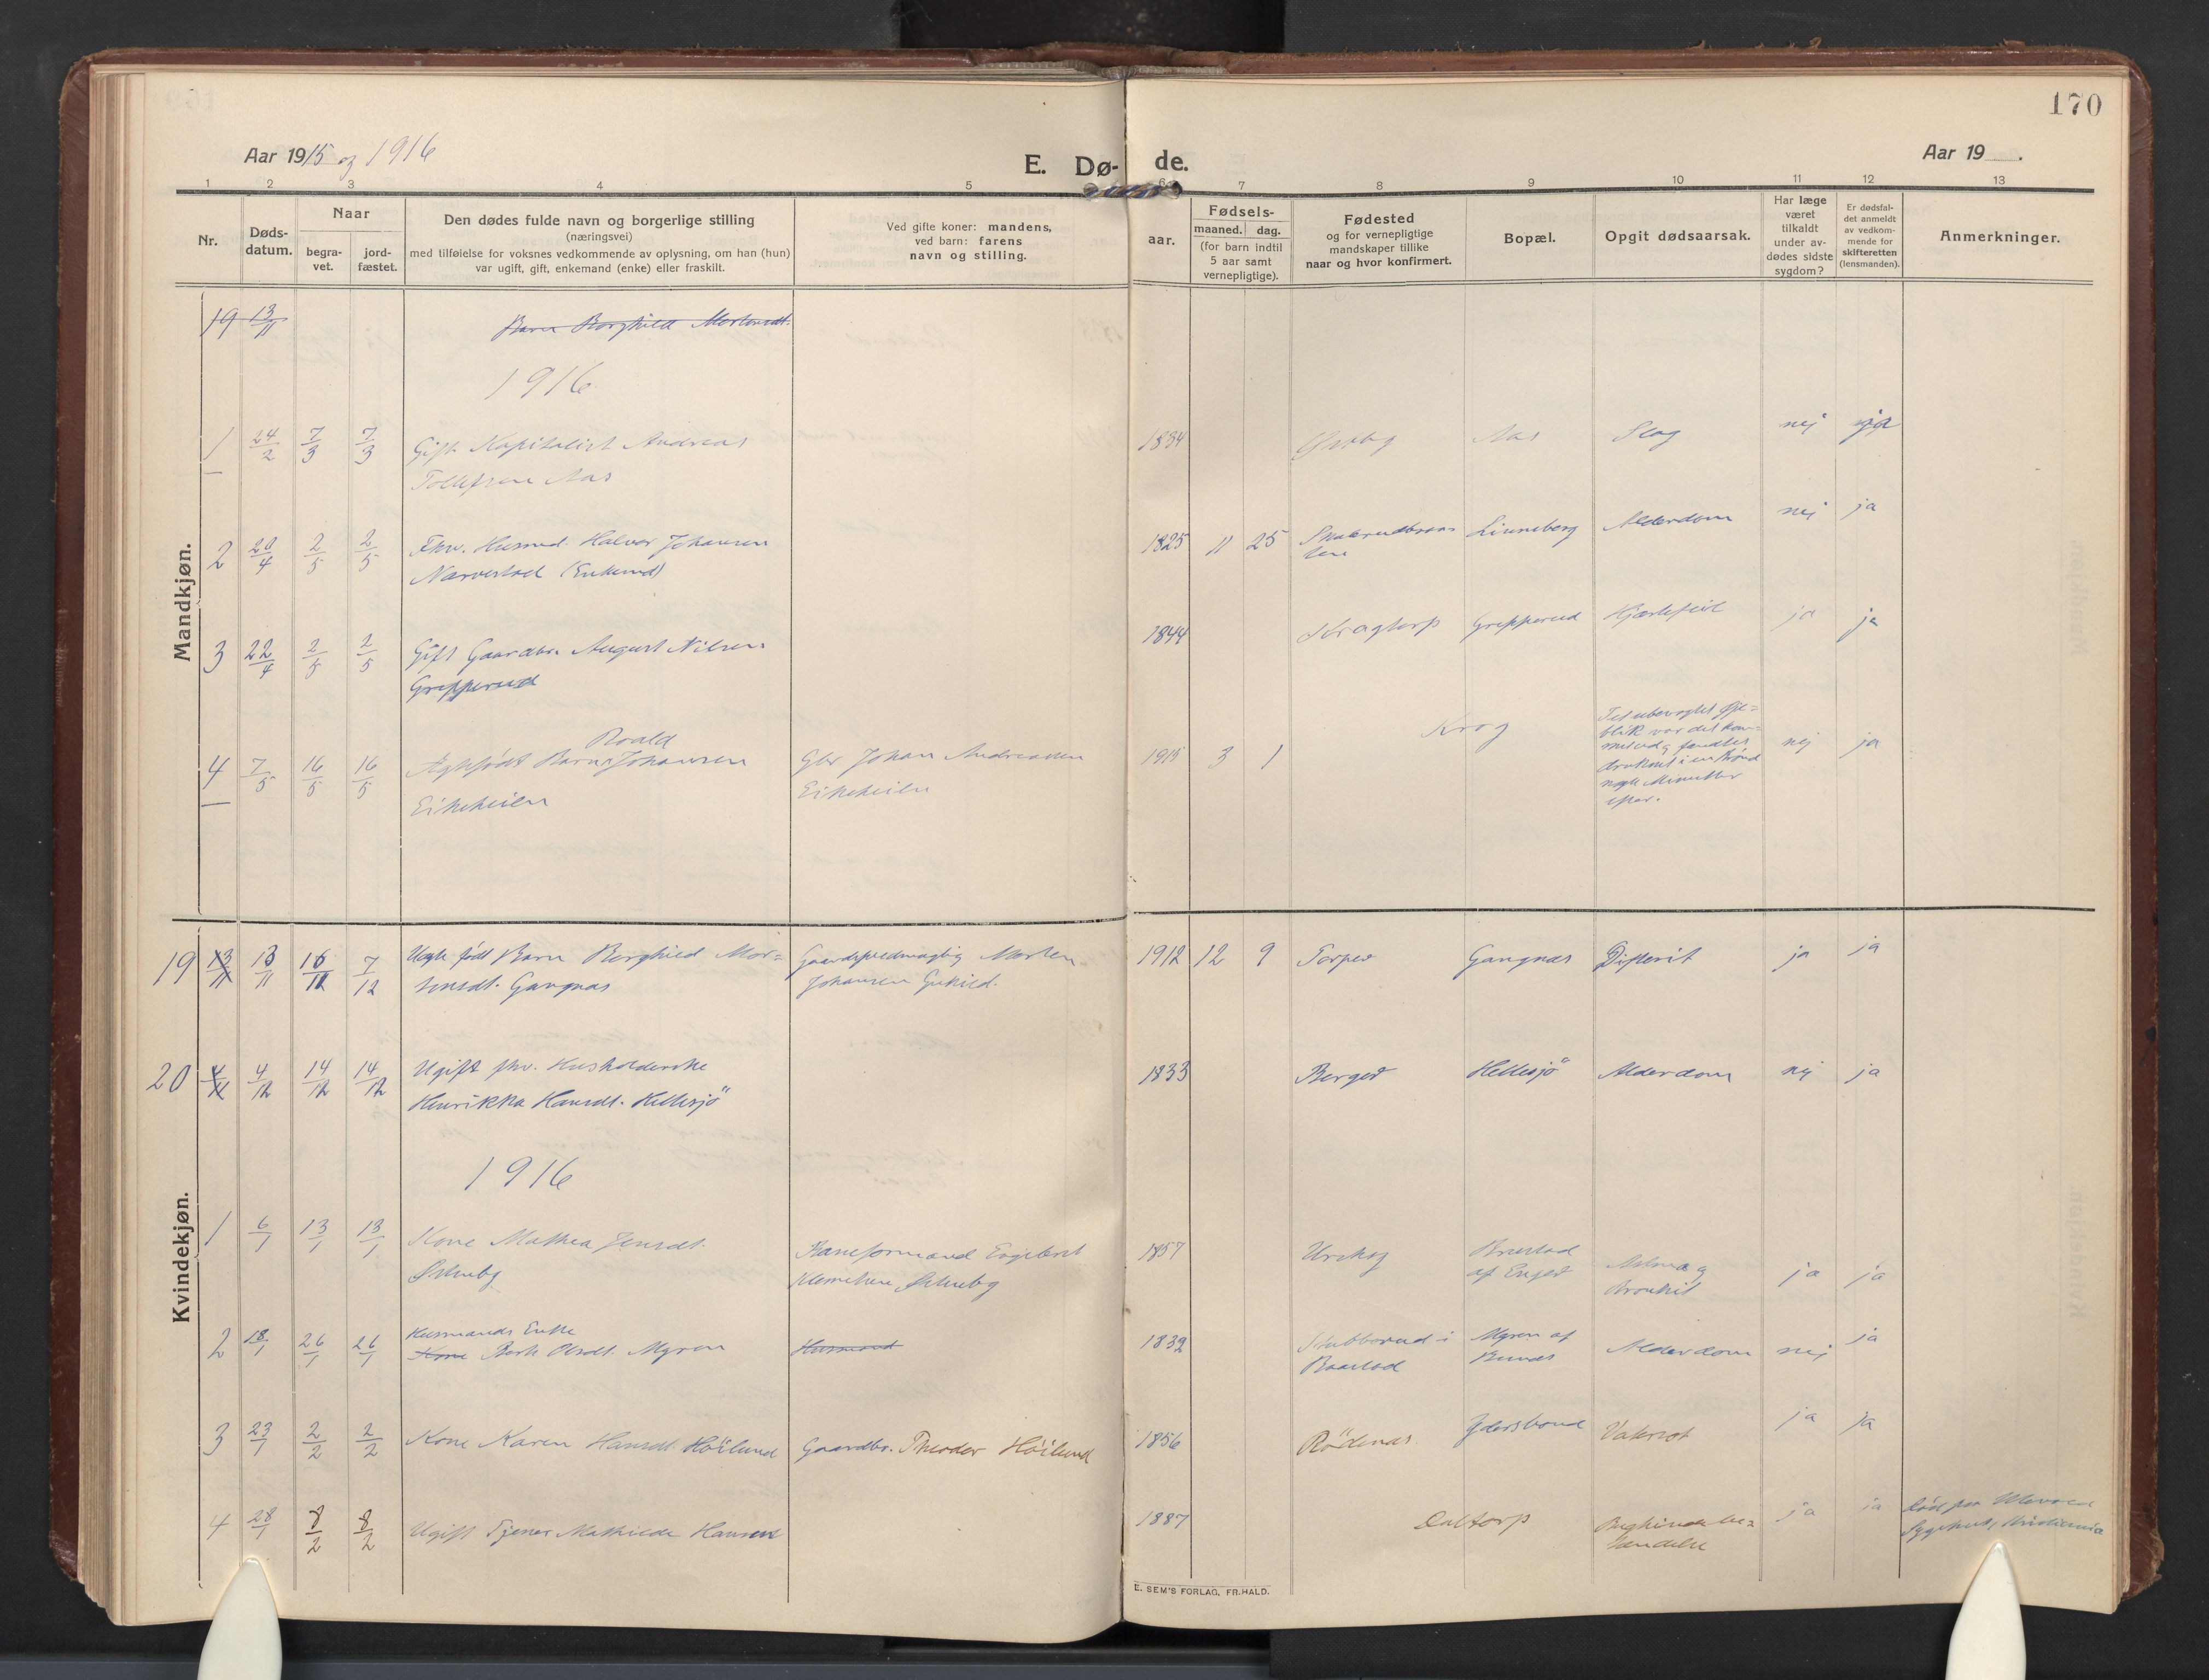 170
Aar 1915 og 1916
E. Dø-
de.
Aar 19 .
1 2 3 4 5 6 7 8 9 10 11 12 13
Nr.
Døds-
datum.
Naar
begra-
vet.
jord-
fæstet.
Den dødes fulde navn og borgerlige stilling
(næringsvei)
med tilføielse for voksnes vedkommende av oplysning, om han (hun)
var ugift, gift, enkemand (enke) eller fraskilt.
Ved gifte koner: mandens,
ved barn: farens
navn og stilling.
aar.
Fødsels-
maaned. dag.
(for barn indtil
5 aar samt
vernepligtige).
Fødested
og for vernepligtige
mandskaper tillike
naar og hvor konfirmert.
Bopæl.
Opgit dødsaarsak.
Har læge
været
tilkaldt
under av-
dødes sidste
sygdom?
Er dødsfal-
det anmeldt
av vedkom-
mende for
skifteretten
(lensmanden).
Anmerkninger.
Mandkjøn.
19 13/11 Barn Borghild Mortensdt.
1916
1 24/2 7/3 7/3 Gift Kapitalist Andreas 1834 Aas Slag nej
Tollefsen Aas
2 20/4 2/5 2/5 Fhv. Husmd. Halvor Johansen 1825 11 25 Linneberg Alderdom nej ja
Narvestad (Enkemd)
3 22/4 2/5 2/5 Gift Gaardbr. August Nilsen 1844 Kragtorp Grepperud Hjærtefeil ja ja
Grepperud
Roald
4 7/5 16/5 16/5 Ægtefødt Barn Johansen Gbr Johan Andreassen 1915 3 1 Krog nej ja
Eikeheien Eikeheien
I et ubevogtet Øje-
blik var det kom-
met ud og fandtes
druknet i en Brønd
nogle Minutter
efter.
Kvindekjøn.
19 13/11 13/11 16/11 7/12 Uægte født Barn Borghild Mor- Morten 1912 12 9 Torper Gangnæs Difterit ja ja
tensdt. Gangnæs Johansen
20 4/12 14/12 14/12 Ugift fhv. Husholderske 1833 Berger Hellesjö Alderdom nej ja
Henrikka Hansdt. Hellesjö
1916
1 6/1 13/1 13/1 Kone Mathea Jensdt. Baneformand Engebret 1857 Urskog af Enger Astma og ja ja
Solueby Klemetsen Solueby Bronkit
Husmands Enke
2 18/1 26/1 26/1 Kone Berte Olsdt. Myren Husmand 1832 Stubberud i Myren af Alderdom nej ja
Baastad
3 23/1 2/2 2/2 Kone Karen Hansdt. Höilund Gaardbr. Theodor Höilund 1856 Rödenæs Ydersbond Vatersot ja ja
4 28/1 8/2 8/2 Ugift Tjener Mathilde Hansen 1887 Daltorp Bughindebe- ja ja Død paa Ulevold
tændelse Sygehus, Kristiania
E. SEM'S FORLAG, FR.HALD.